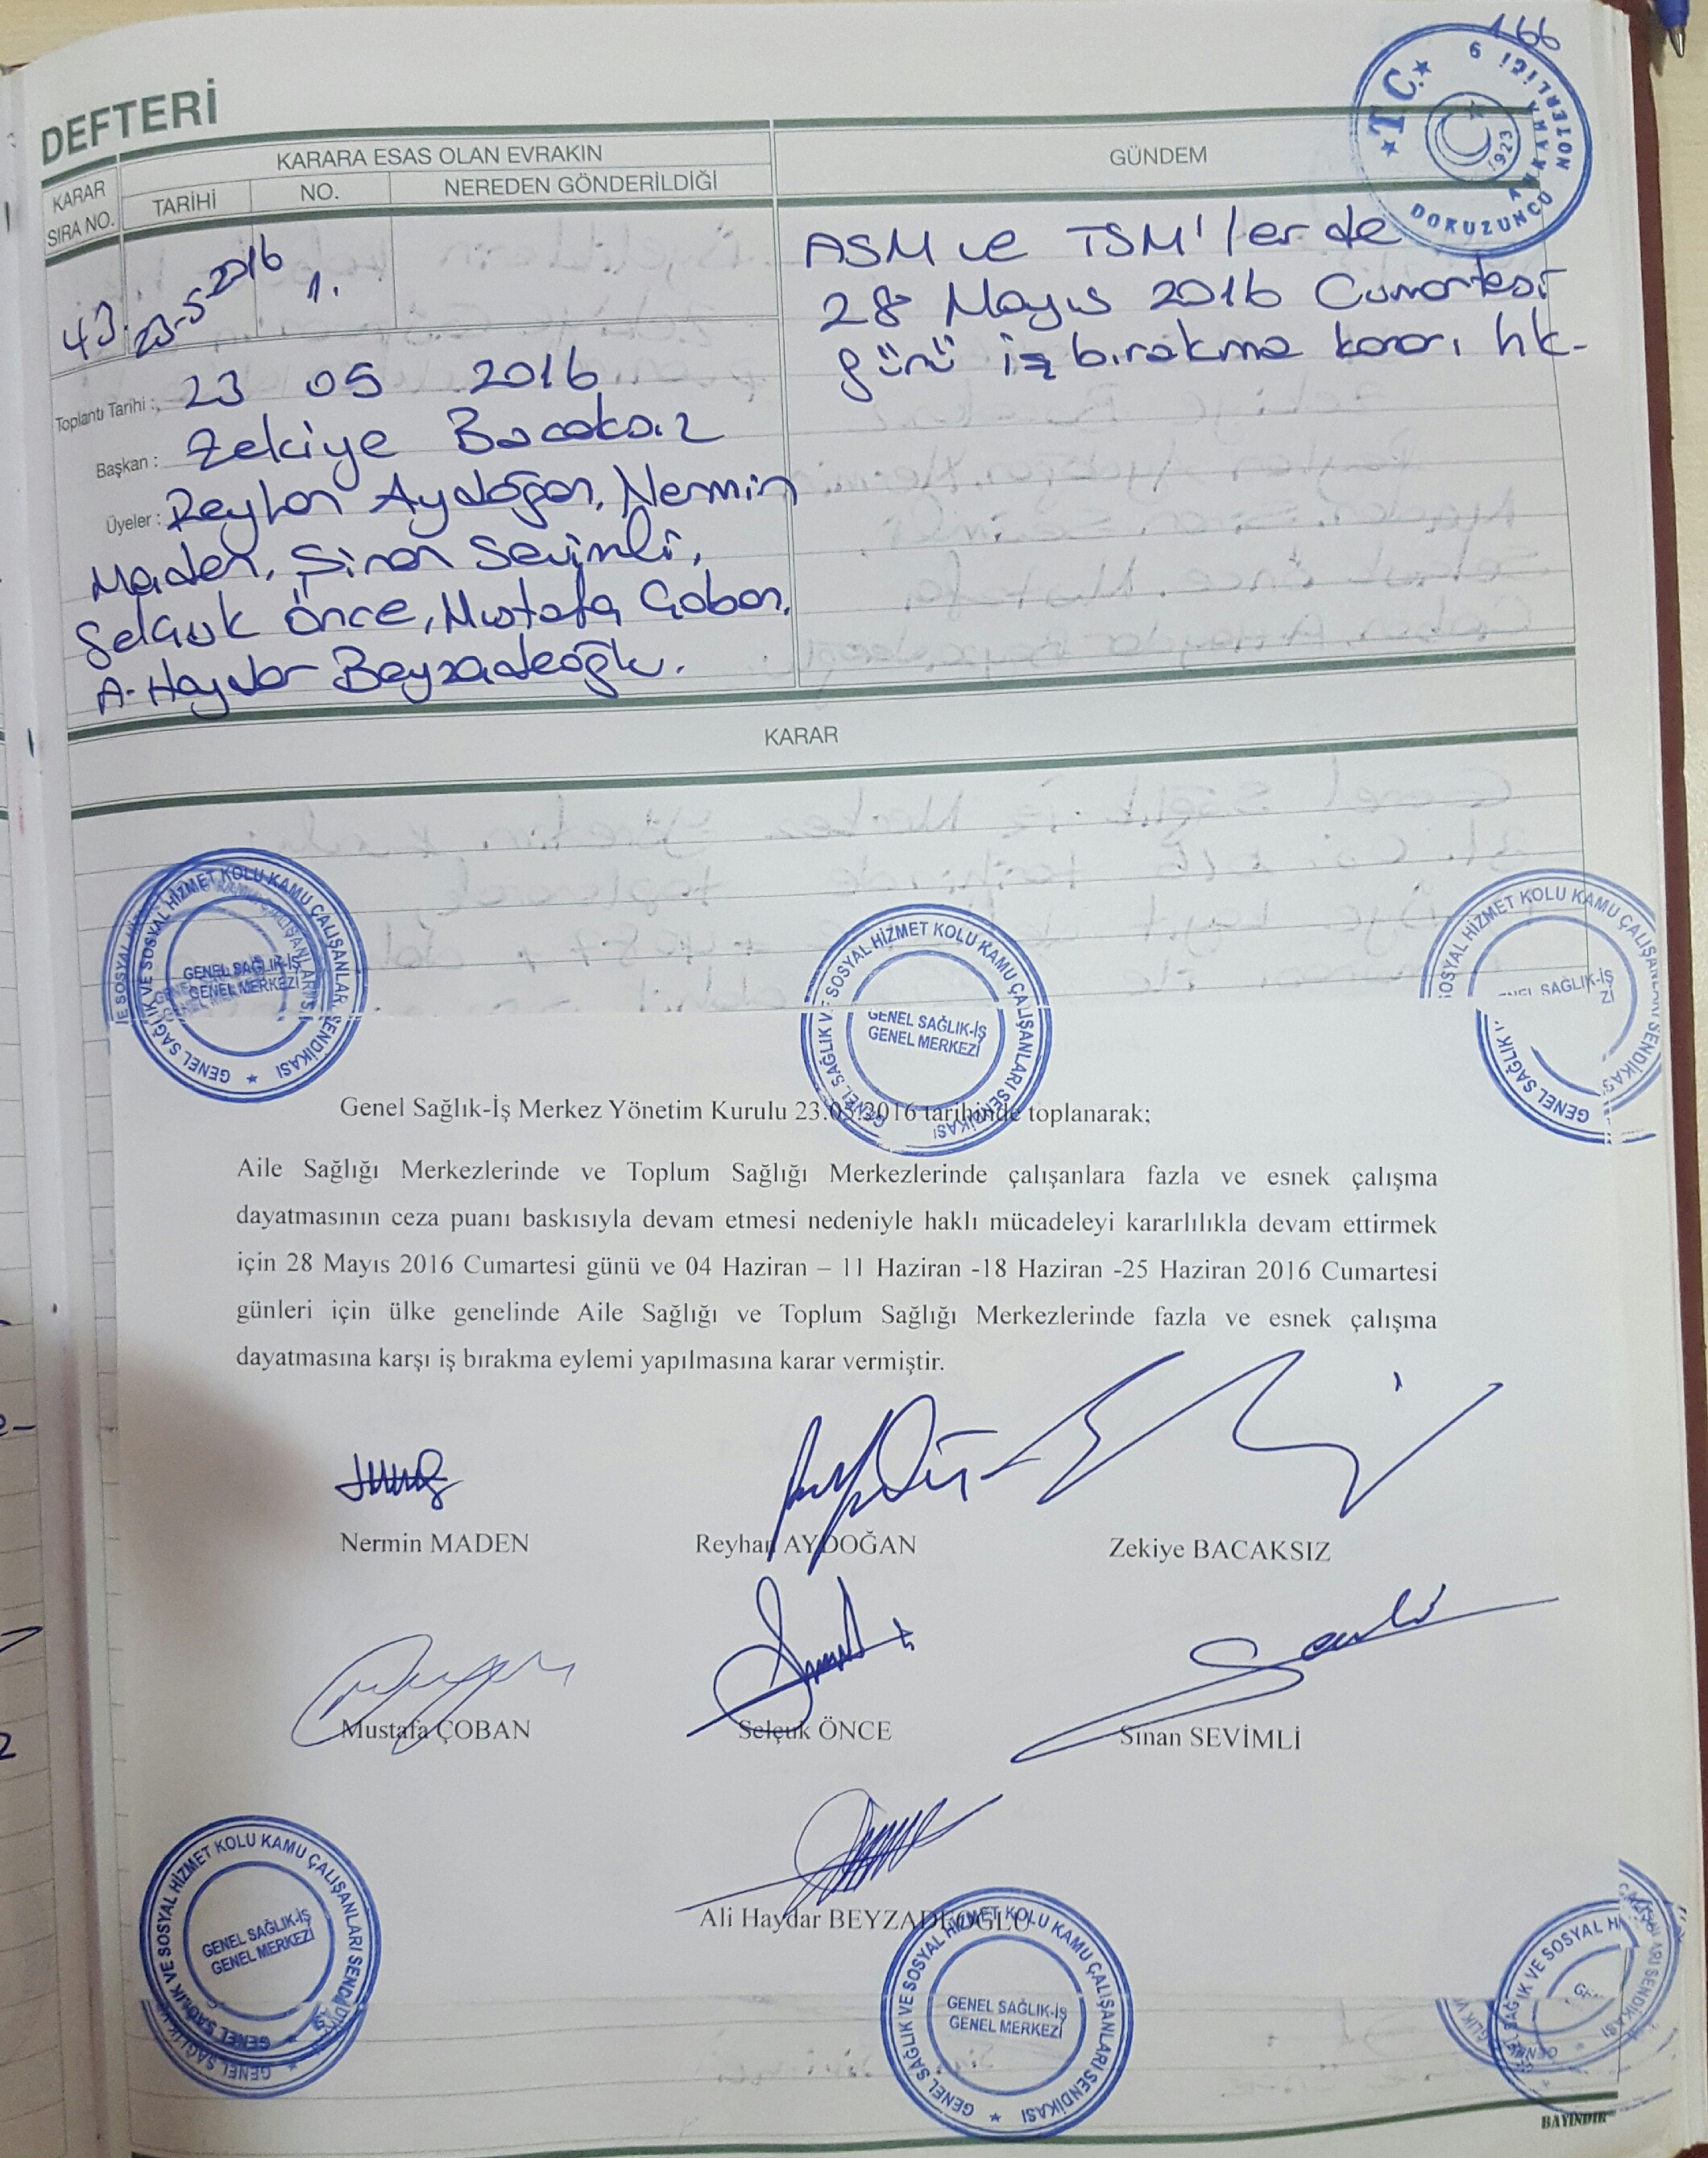 166
DEFTERİ
T.C. ANKARA DOKUZUNCU NOTERLİĞİ 9
1923
KARAR SIRA NO.
KARARA ESAS OLAN EVRAKIN
GÜNDEM
TARİHİ
NO.
NEREDEN GÖNDERİLDİĞİ
43.
23-5-2016
1.
ASM ve TSM'lerde
28 Mayıs 2016 Cumartesi
günü iş bırakma kararı hk.
Toplantı Tarihi : 23 05 2016
Başkan : Zekiye Bacaksız
Üyeler : Reyhan Aydoğan, Nermin
Maden, Sinan Sevimli,
Selçuk Önce, Mustafa Çoban,
A. Haydar Beyzadeoğlu.
KARAR
GENEL SAĞLIK VE SOSYAL HİZMET KOLU KAMU ÇALIŞANLARI SENDİKASI
GENEL SAĞLIK-İŞ
GENEL MERKEZİ
GENEL SAĞLIK VE SOSYAL HİZMET KOLU KAMU ÇALIŞANLARI SENDİKASI
GENEL SAĞLIK-İŞ
GENEL MERKEZİ
SOSYAL HİZMET KOLU KAMU ÇALIŞANLARI SENDİKASI
GENEL SAĞLIK
SAĞLIK-İŞ
Genel Sağlık-İş Merkez Yönetim Kurulu 23.05.2016 tarihinde toplanarak;
Aile Sağlığı Merkezlerinde ve Toplum Sağlığı Merkezlerinde çalışanlara fazla ve esnek çalışma
dayatmasının ceza puanı baskısıyla devam etmesi nedeniyle haklı mücadeleyi kararlılıkla devam ettirmek
için 28 Mayıs 2016 Cumartesi günü ve 04 Haziran – 11 Haziran -18 Haziran -25 Haziran 2016 Cumartesi
günleri için ülke genelinde Aile Sağlığı ve Toplum Sağlığı Merkezlerinde fazla ve esnek çalışma
dayatmasına karşı iş bırakma eylemi yapılmasına karar vermiştir.
Nermin MADEN
Reyhan AYDOĞAN
Zekiye BACAKSIZ
Mustafa ÇOBAN
Selçuk ÖNCE
Sinan SEVİMLİ
Ali Haydar BEYZADEOĞLU
GENEL SAĞLIK VE SOSYAL HİZMET KOLU KAMU ÇALIŞANLARI SENDİKASI
GENEL SAĞLIK-İŞ
GENEL MERKEZİ
GENEL SAĞLIK VE SOSYAL HİZMET KOLU KAMU ÇALIŞANLARI SENDİKASI
GENEL SAĞLIK-İŞ
GENEL MERKEZİ
BAYINDIR